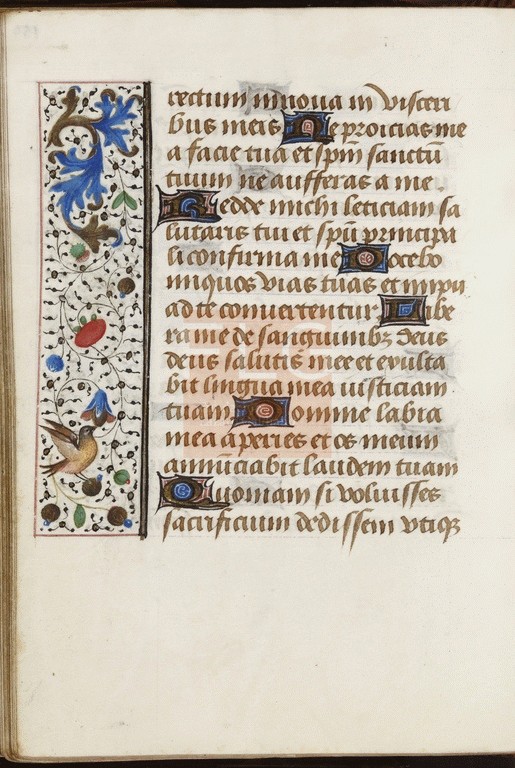 rectum innoua in visceri
bus meis Ne proicias me
a facie tua et spm̄ sanctū
tuum ne aufferas a me.
Redde michi leticiam sa
lutaris tui et spū principa
li confirma me Docebo
iniquos vias tuas et impii
ad te conuertentur Libe
ra me de sanguinibꝫ deus
deus salutis mee et exulta
bit lingua mea iusticiam
tuam Domine labia
mea aperies et os meum
annūciabit laudem tuam
Quoniam si voluisses
sacrificium dedissem vtiqꝫ